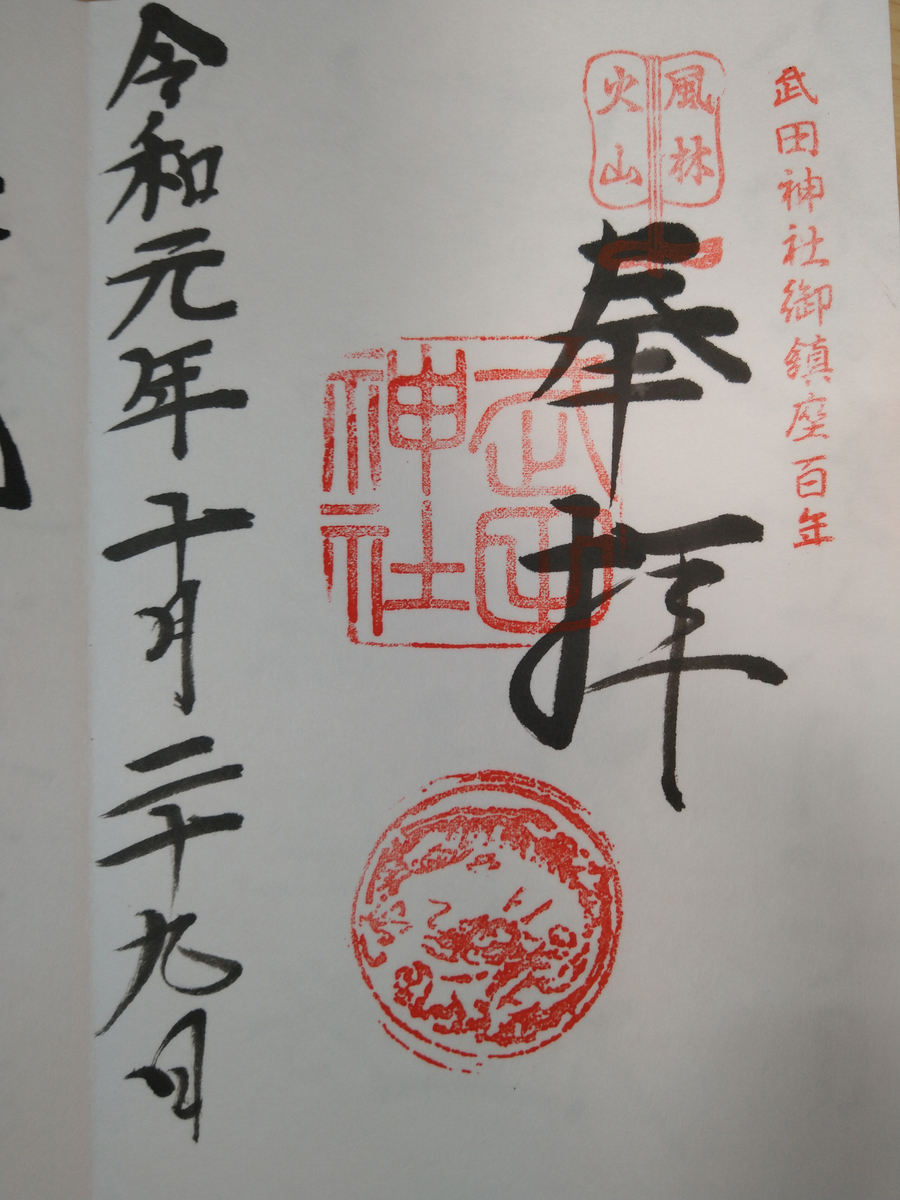 武田神社御鎮座百年
風林
火山
奉拝
武田
神社
令和元年十月二十九日